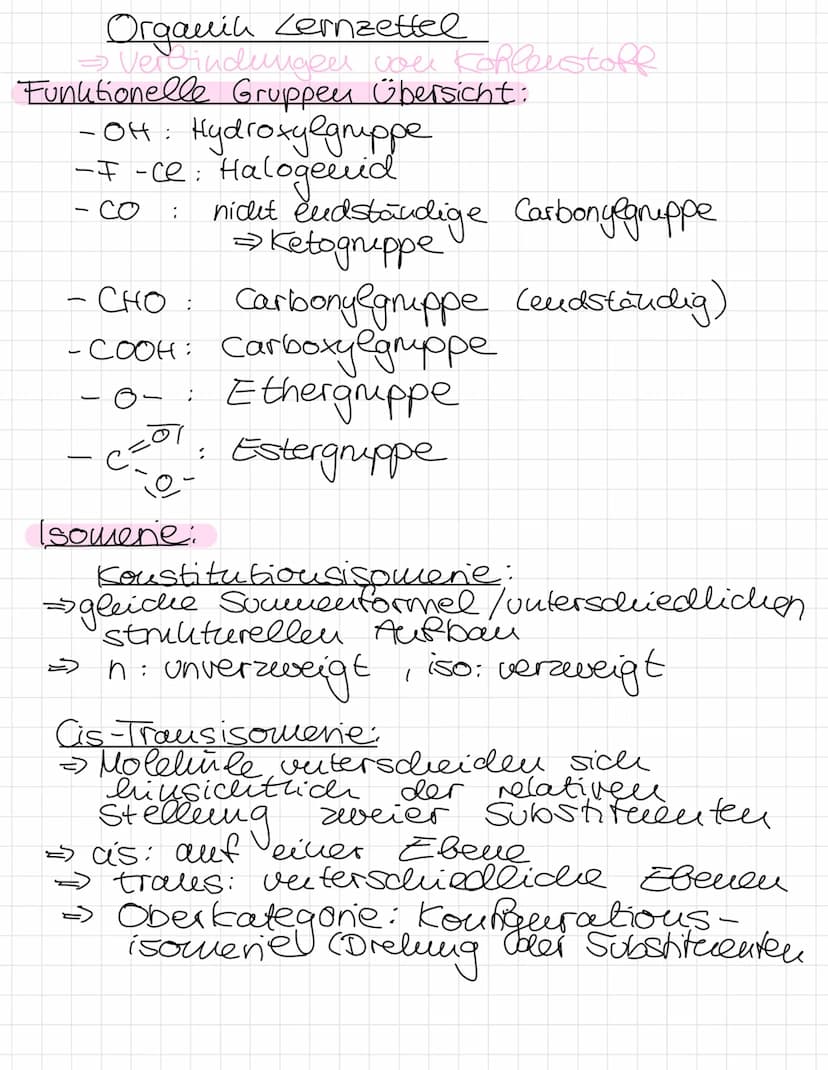 Organik Lernzettel
⇒ Verbindungen von Kohlenstoff
Funktionelle Gruppen Übersicht:
- OH : Hydroxylgruppe
- F -Cl : Halogenid
- CO : nicht endständige Carbonylgruppe
⇒ Ketogruppe
- CHO : Carbonylgruppe (endständig)
- COOH : Carboxylgruppe
- O - : Ethergruppe
- C =O -O- : Estergruppe
Isomerie:
Konstitutionsisomerie:
⇒ gleiche Summenformel / unterschiedlichen
strukturellen Aufbau
⇒ n : unverzweigt , iso: verzweigt
Cis-Transisomerie:
⇒ Moleküle unterscheiden sich
hinsichtlich der relativen
Stellung zweier Substituenten
⇒ cis: auf einer Ebene
⇒ trans: unterschiedliche Ebenen
⇒ Oberkategorie: Konfigurations-
isomerie (Drehung der Substituenten